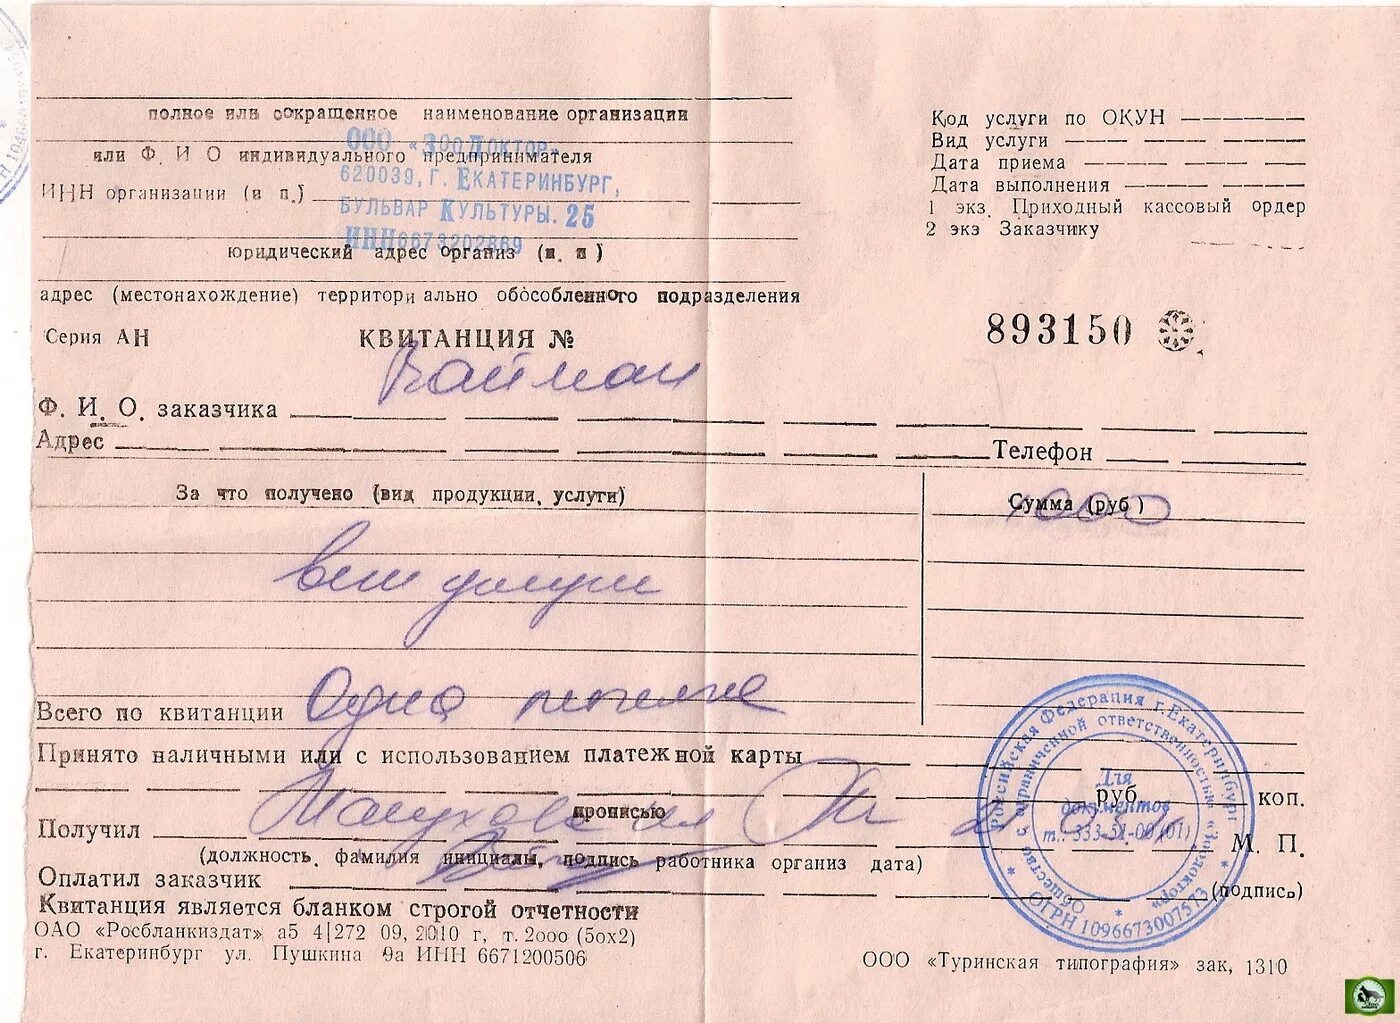 полное или сокращенное наименование организации
ООО «ЗооДоктор»
или Ф. И О индивидуального предпринимателя
620039, г. Екатеринбург,
ИНН организации (и п.)
бульвар Культуры. 25
ИНН6673202869
юридический адрес организ (и. п)
адрес (местонахождение) территори ально обособленного подразделения
Код услуги по ОКУН
Вид услуги
Дата приема
Дата выполнения
1 экз. Приходный кассовый ордер
2 экз Заказчику
Серия АН КВИТАНЦИЯ № 893150
Ф. И. О. заказчика
Адрес Телефон
За что получено (вид продукции, услуги) Сумма (руб)
1000
вет услуги
Всего по квитанции Одна тысяча
Принято наличными или с использованием платежной карты
руб. коп.
прописью
Получил М. П.
(должность. фамилия инициалы, подпись работника организ дата)
Оплатил заказчик (подпись)
Квитанция является бланком строгой отчетности
ОАО «Росбланкиздат» а5 4|272 09, 2010 г, т. 2000 (50х2)
г. Екатеринбург ул. Пушкина 9а ИНН 6671200506
ООО «Туринская типография» зак, 1310
Российская Федерация г. Екатеринбург
Общество с ограниченной ответственностью «Зоодоктор»
ОГРН 1096673007573
Для
документов
т. 333-51-00(01)